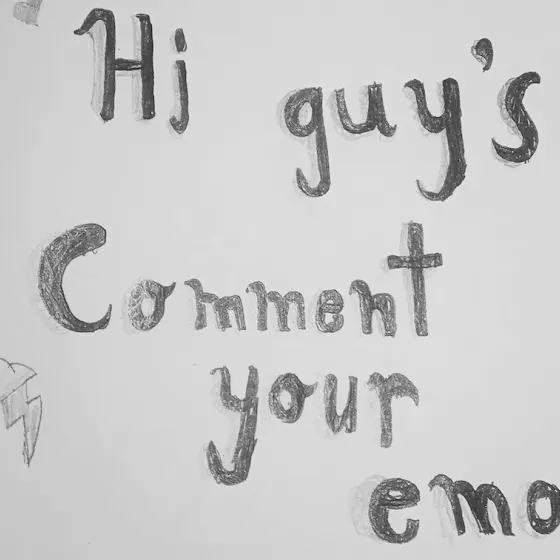 Hi guy's
Comment
your
emo